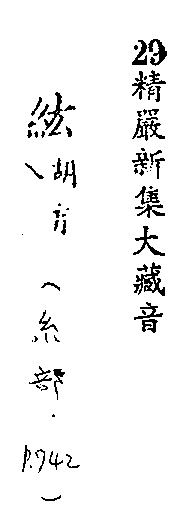 29精嚴新集大藏音
紘〵胡肓(糸部.P.742)